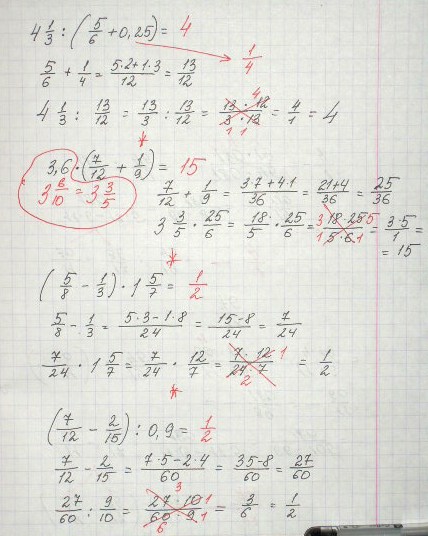 4 1/3 : (5/6 + 0,25) = 4
1/4
5/6 + 1/4 = (5·2+1·3)/12 = 13/12
4 1/3 : 13/12 = 13/3 : 13/12 = (13·12)/(3·13) 4 1 1 = 4/1 = 4
*
3,6 · (7/12 + 1/9) = 15
3 6/10 = 3 3/5
7/12 + 1/9 = (3·7+4·1)/36 = (21+4)/36 = 25/36
3 3/5 · 25/6 = 18/5 · 25/6 = 3 (18·25)/(5·6) 5 1 1 = (3·5)/1 =
= 15
*
(5/8 - 1/3) · 1 5/7 = 1/2
5/8 - 1/3 = (5·3-1·8)/24 = (15-8)/24 = 7/24
7/24 · 1 5/7 = 7/24 · 12/7 = (7·12)/(24·7) 1 2 = 1/2
*
(7/12 - 2/15) : 0,9 = 1/2
7/12 - 2/15 = (7·5-2·4)/60 = (35-8)/60 = 27/60
27/60 : 9/10 = (27·10)/(60·9) 3 1 6 1 = 3/6 = 1/2